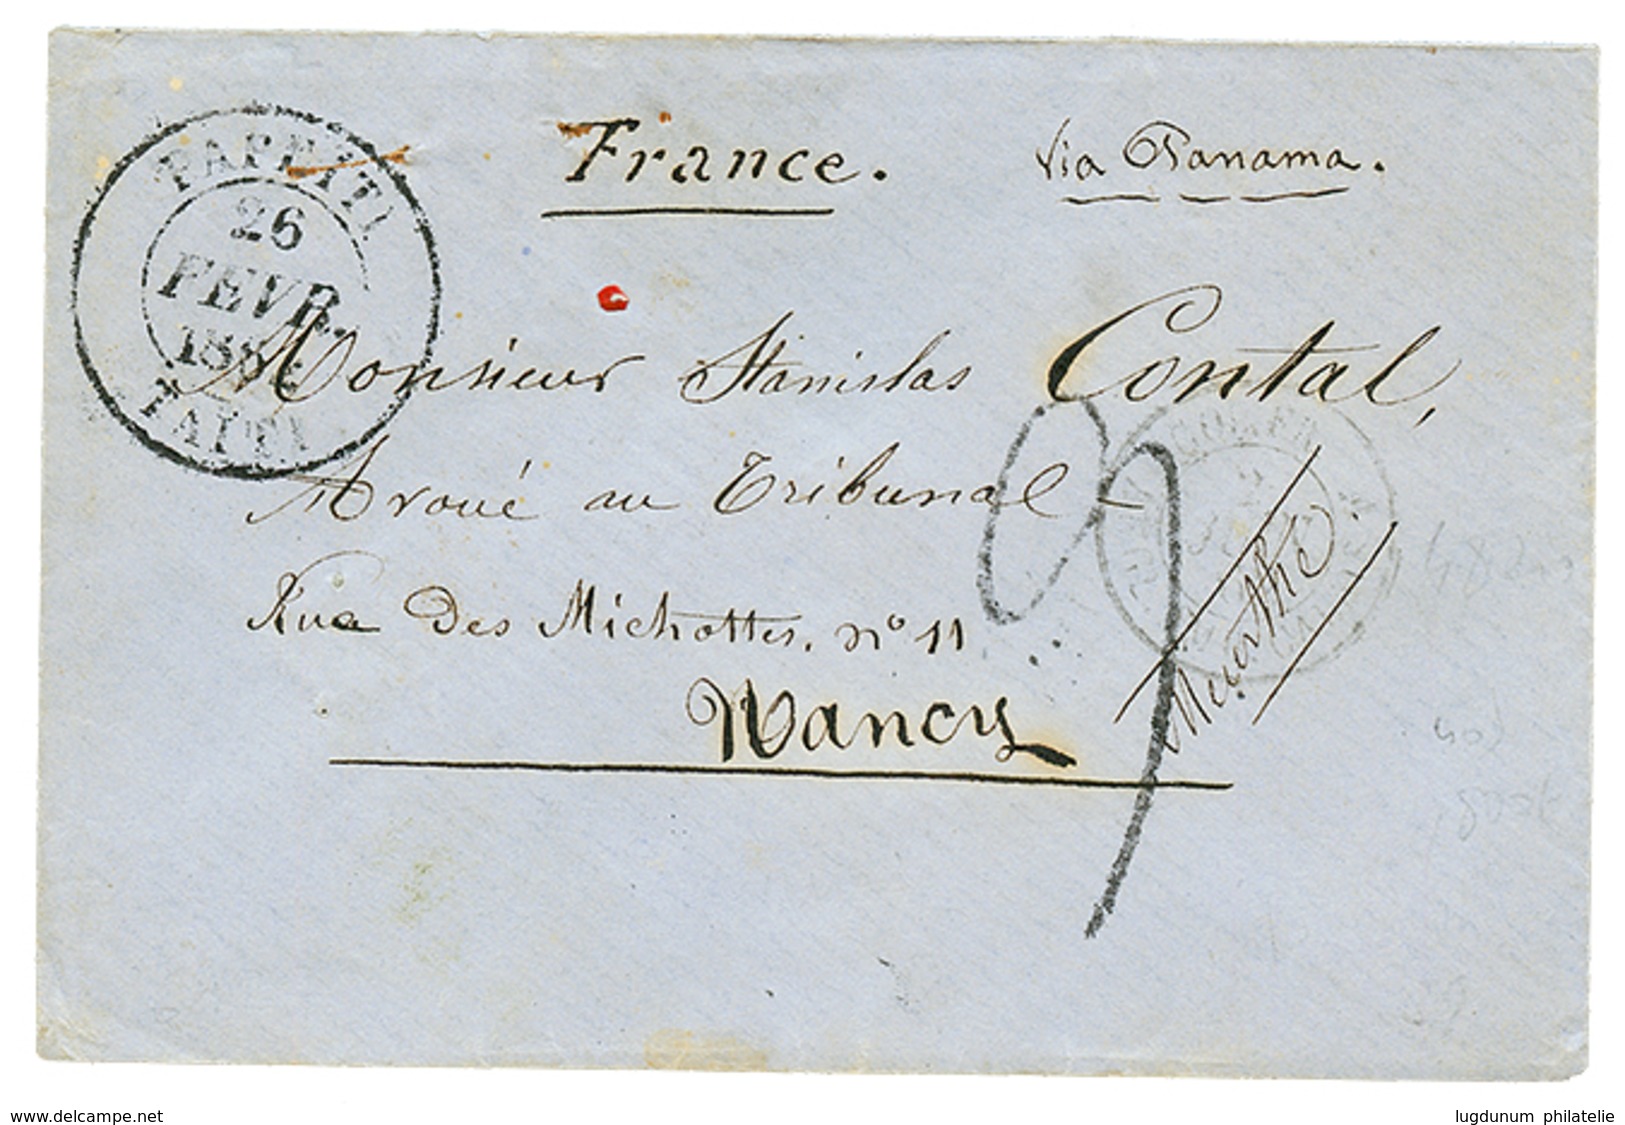 PAPEITI
26
FEVR.
TAITI
France.
Via Panama.
Monsieur Stanislas Contal,
Avoué au Tribunal
Rue des Michottes, n° 11
Nancy
Meurthe.
www.delcampe.net
lugdunum philatelie